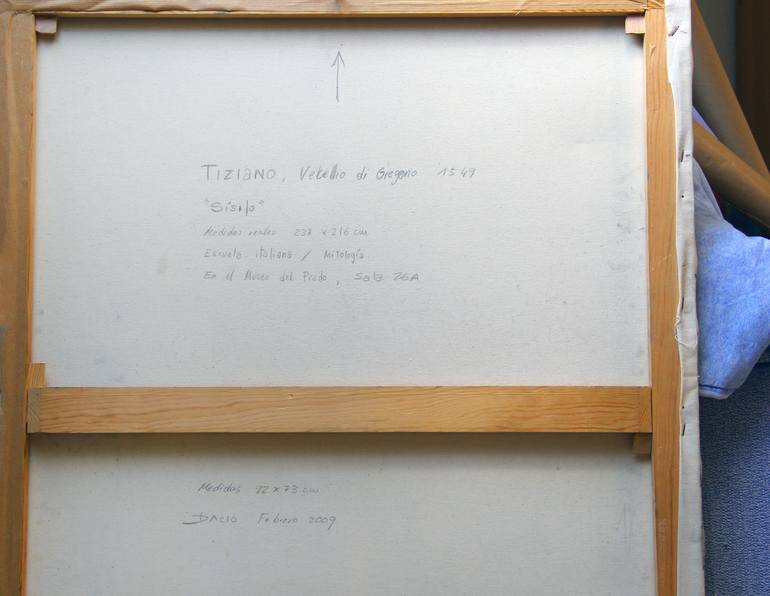 TIZIANO, Vecellio di Gregorio 1549
"Sísifo"
Medidas reales 237 x 216 cm
Escuela italiana / Mitología
En el Museo del Prado, Sala 26A
Medidas 92 x 73 cm
DACIO Febrero 2009